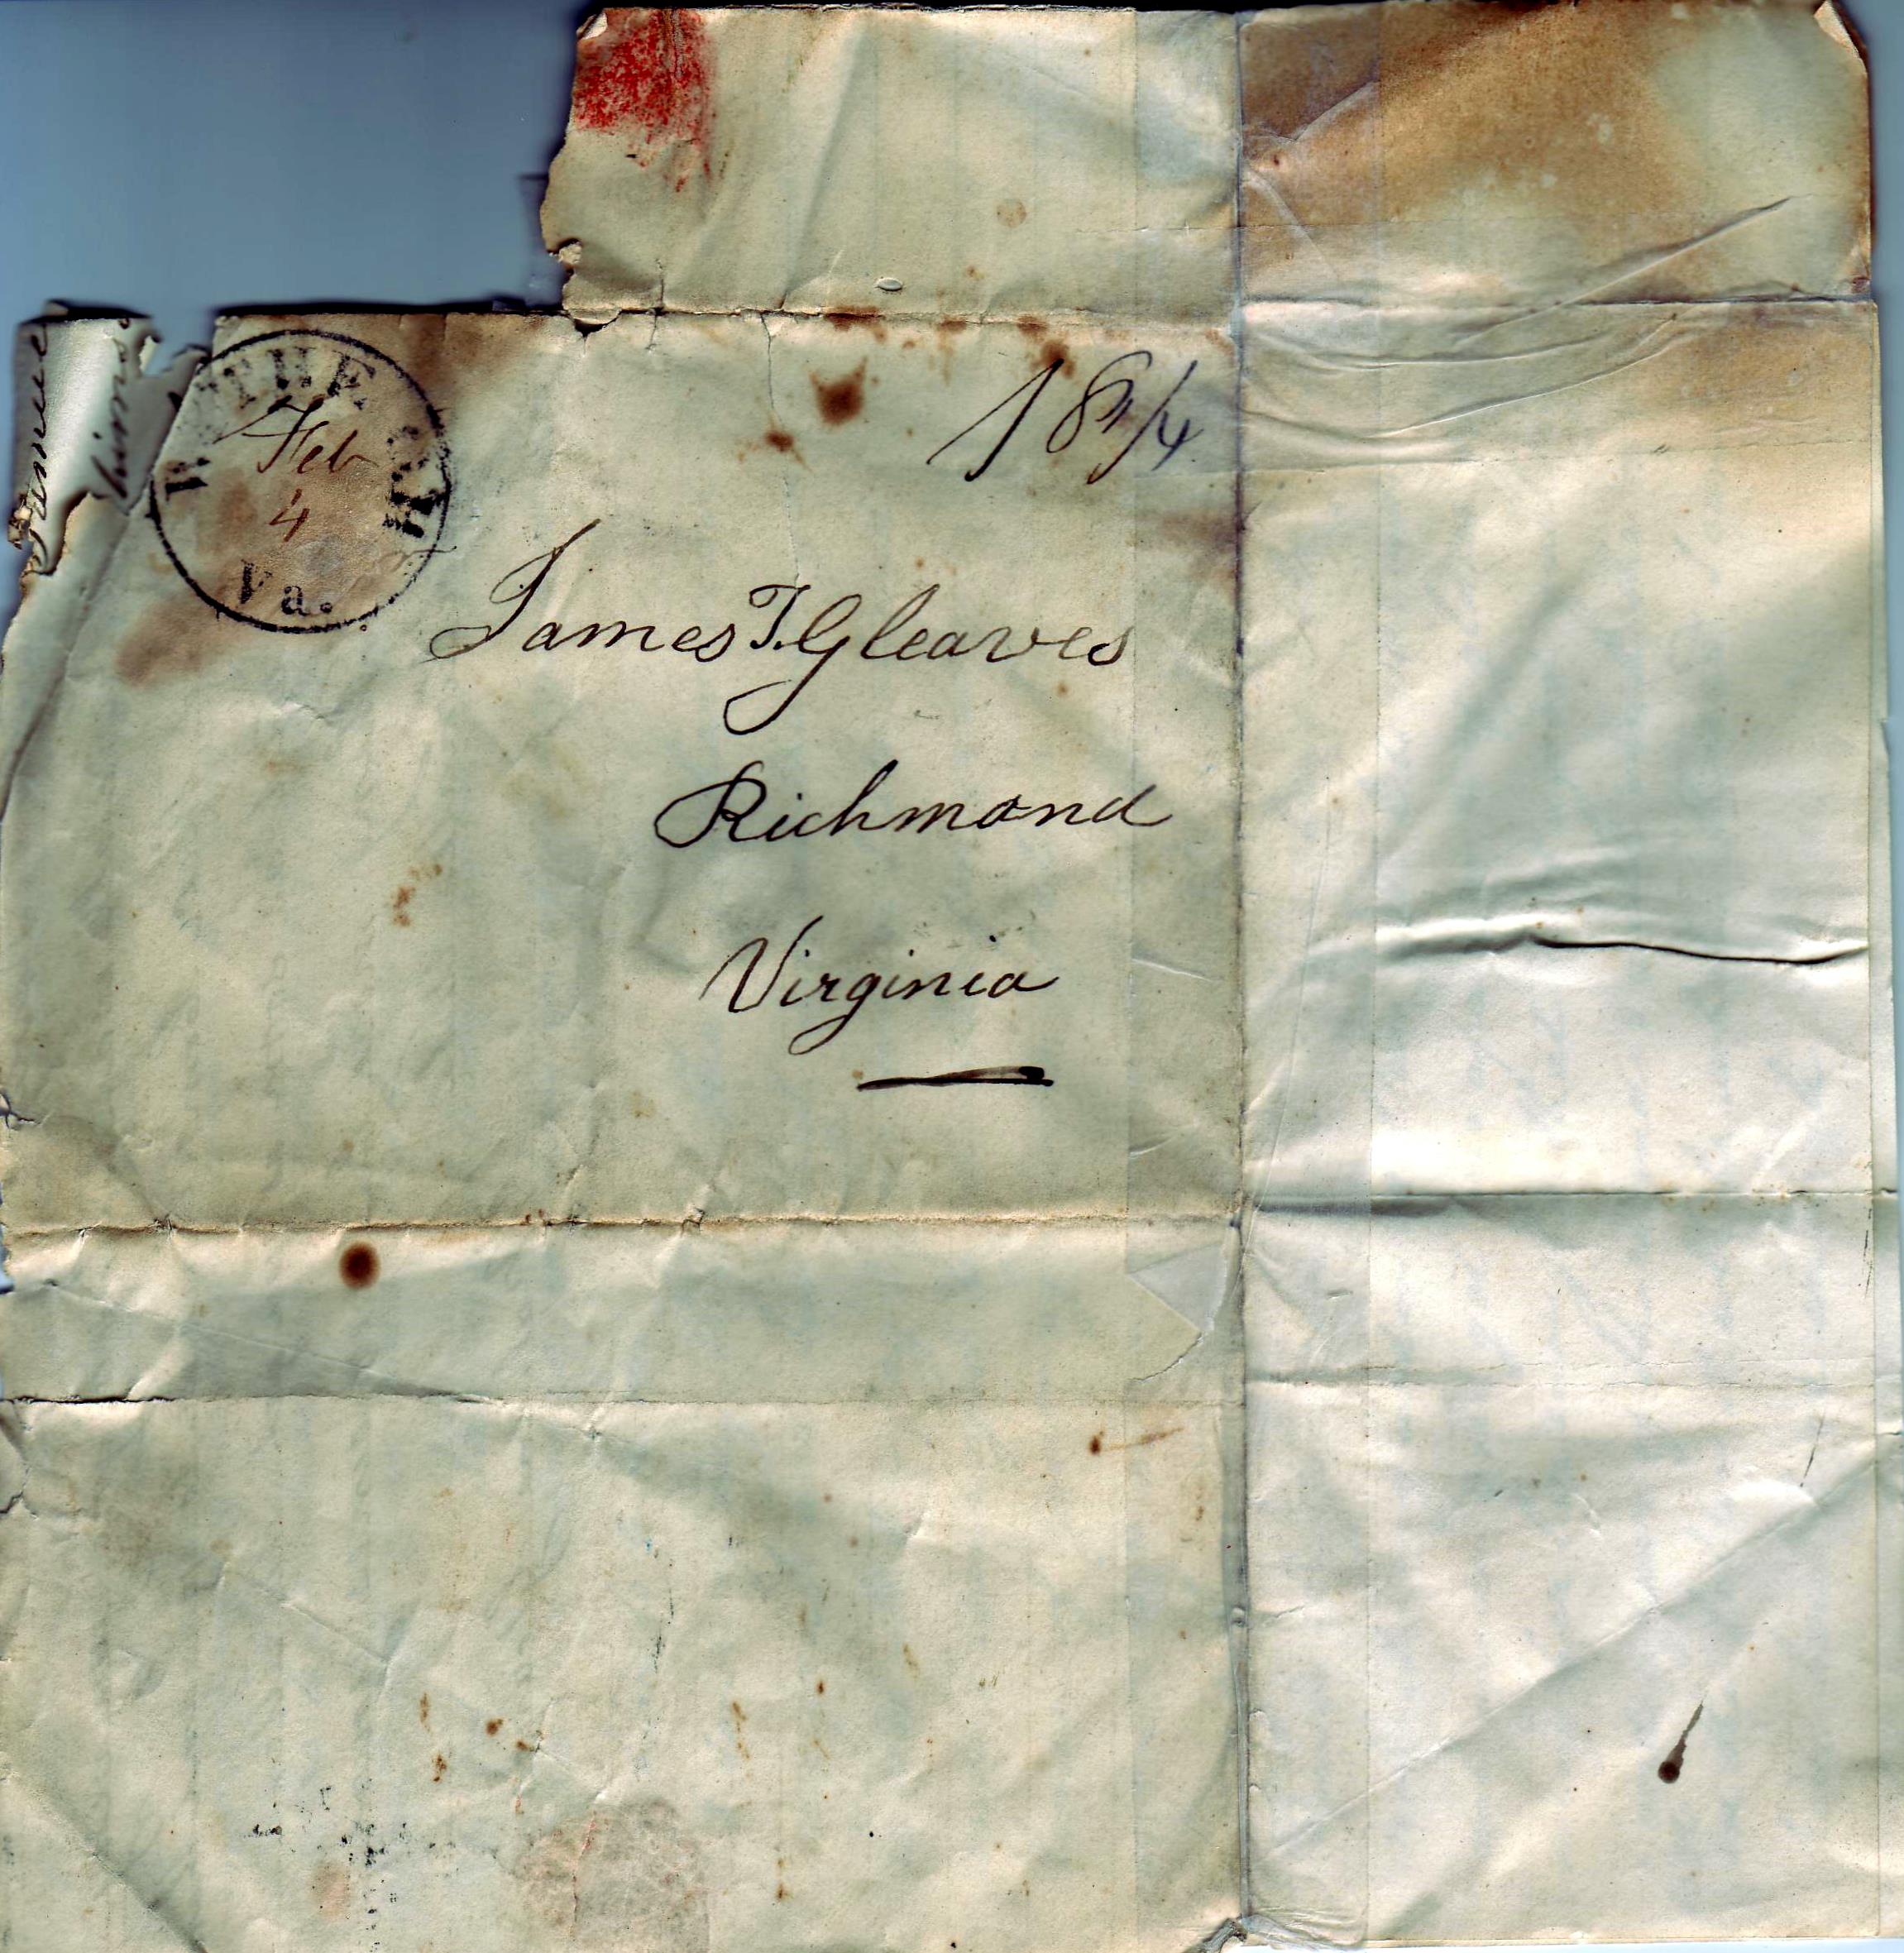 WYTHE C.H.
Feb
4
Va.
18 3/4
James T. Gleaves
Richmond
Virginia